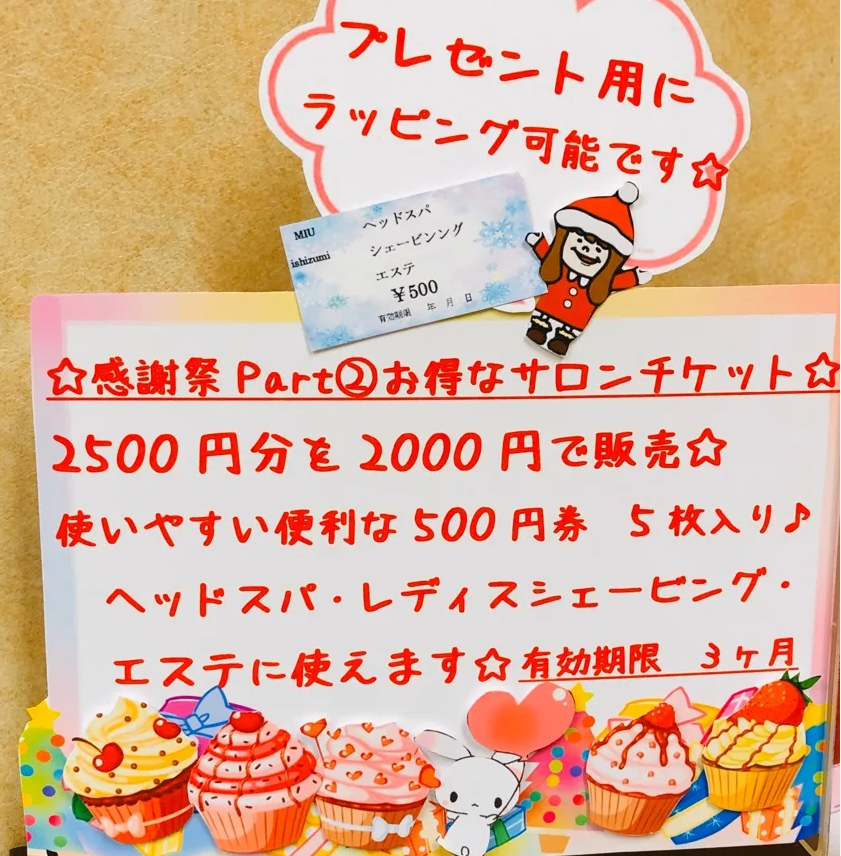 プレゼント用に
ラッピング可能です☆
MIU
ishizumi
ヘッドスパ
シェービンング
エステ
¥500
有効期限　年　月　日
☆感謝祭 Part②お得なサロンチケット☆
2500円分を2000円で販売☆
使いやすい便利な500円券　5枚入り♪
ヘッドスパ・レディスシェービング・
エステに使えます☆有効期限　3ヶ月